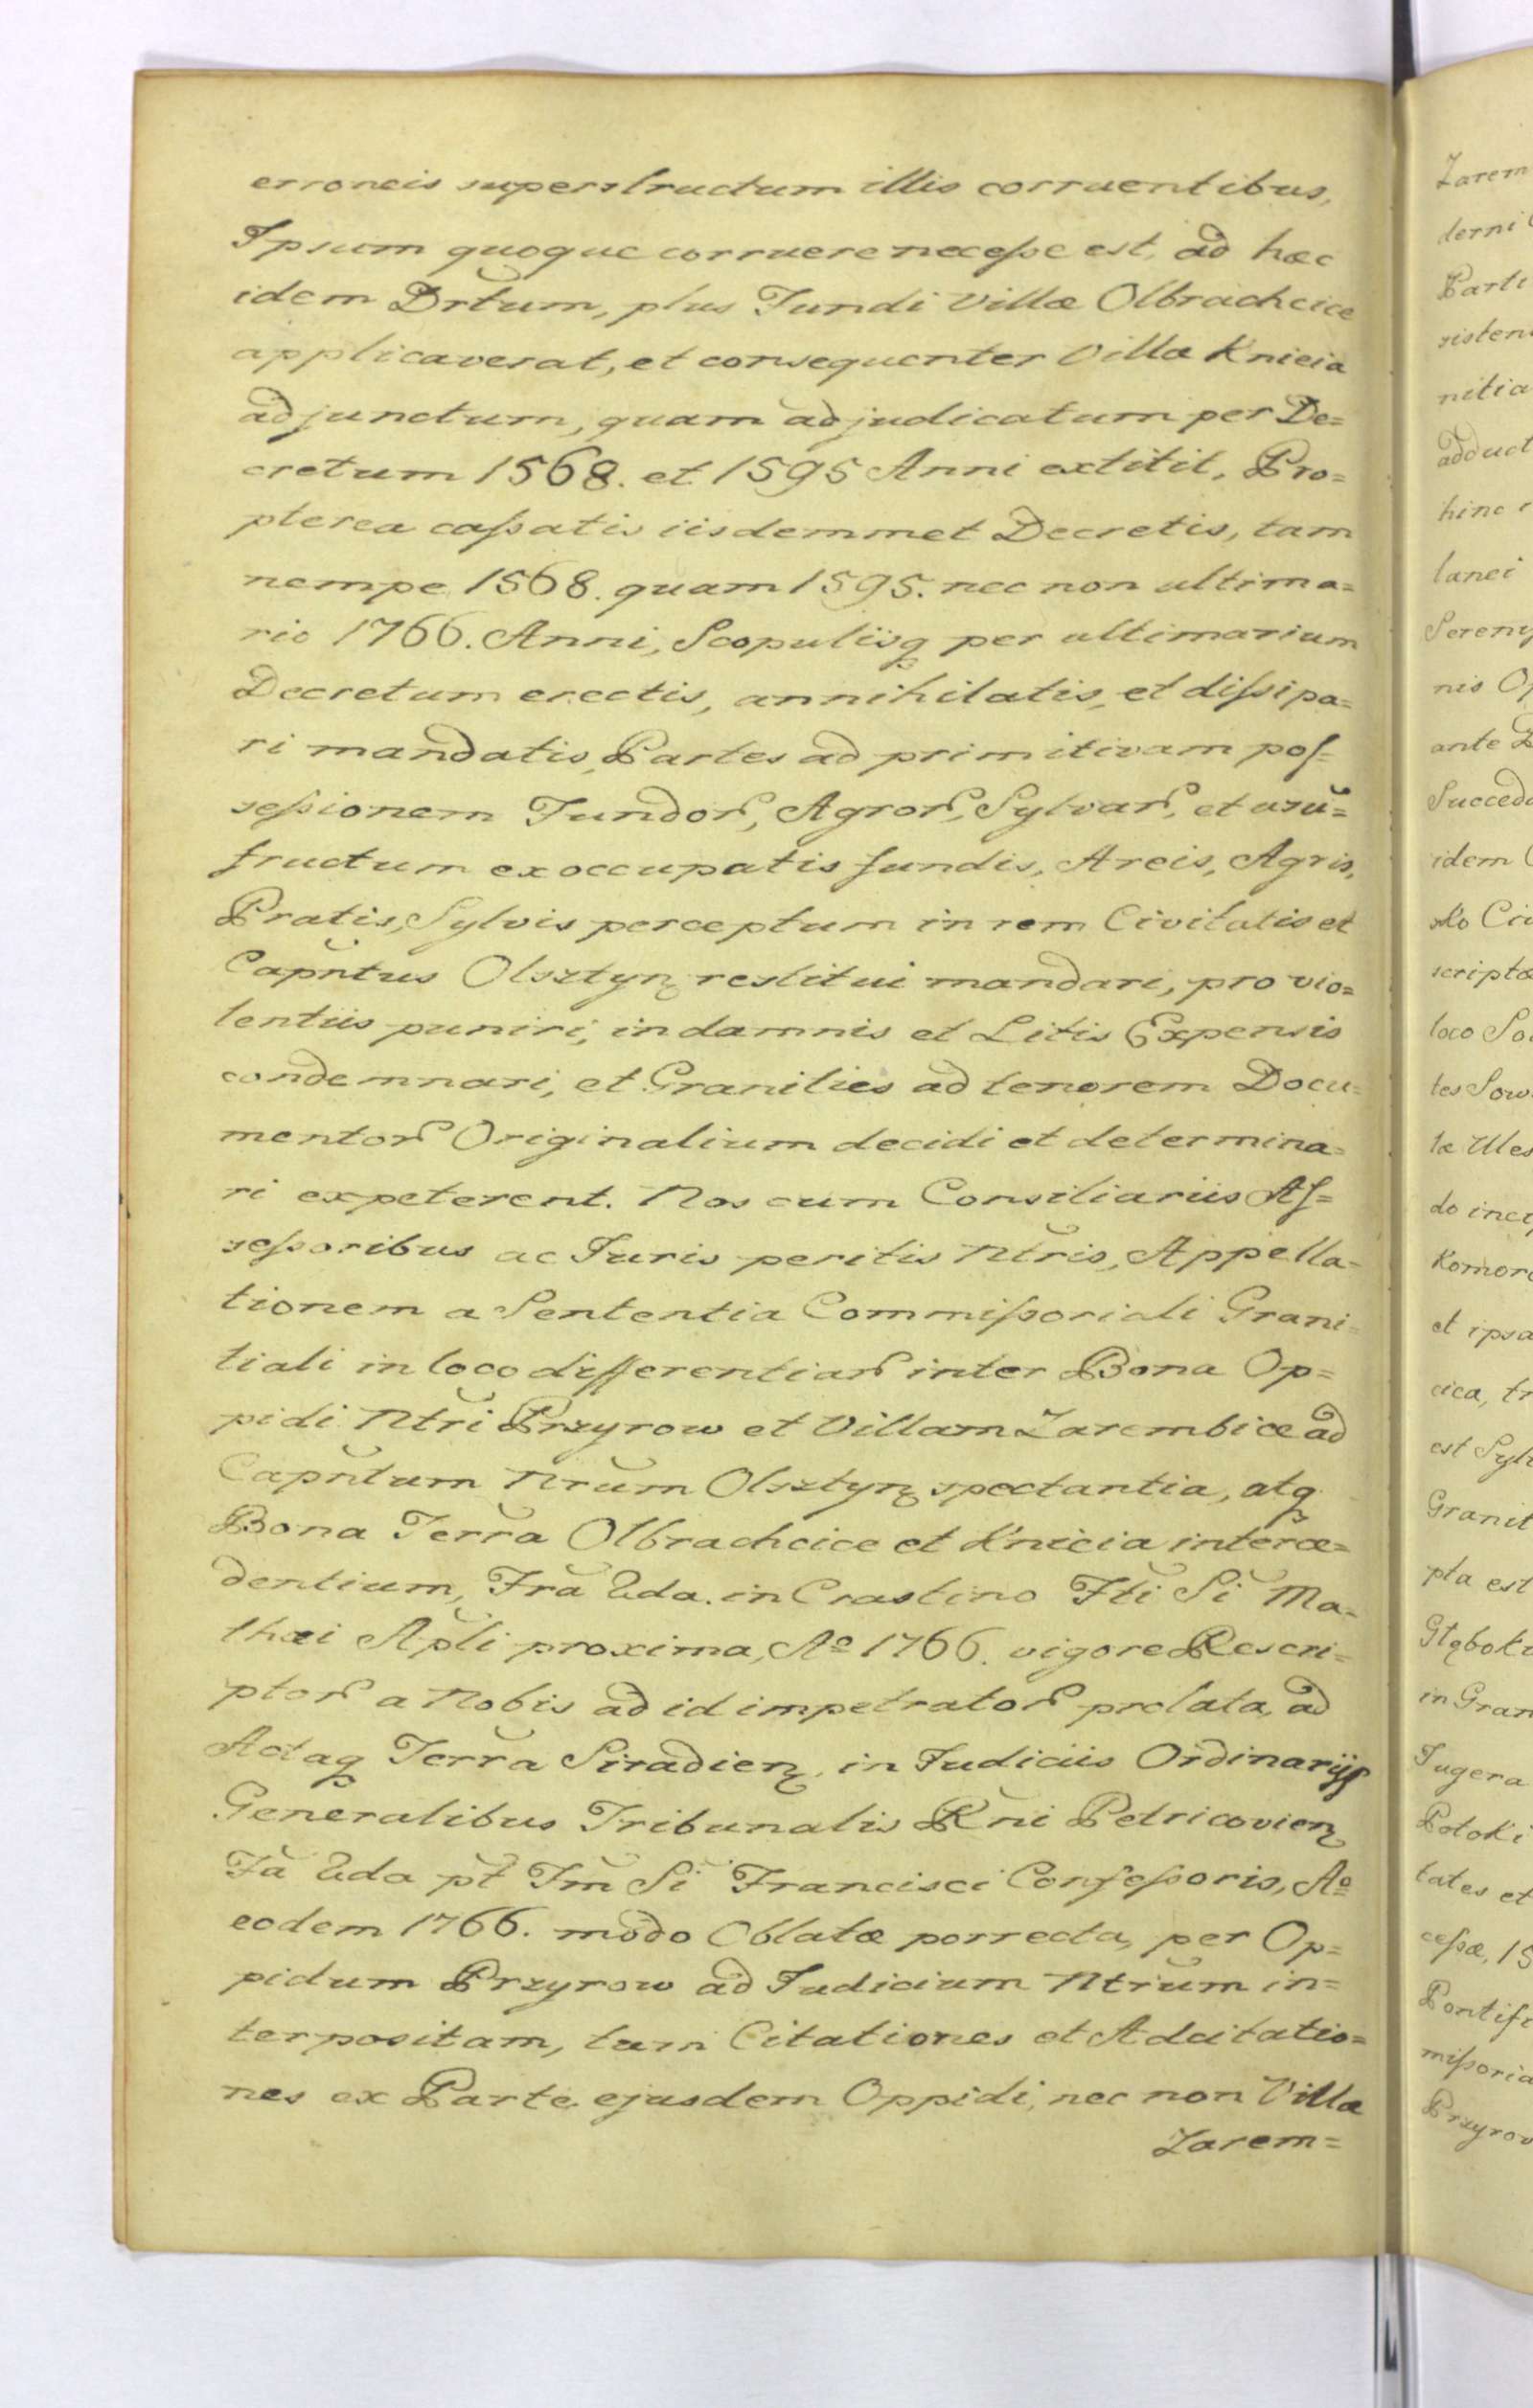 erroneis superstructum illis corruentibus,
Ipsum quoque corruere necesse est, ad hæc
idem Drtum, plus Fundi Villæ Olbrachcice
applicaverat, et consequenter Villæ Knieia
adjunctum, quam adjudicatum per De=
cretum 1568. et 1595 Anni extitit, Pro=
pterea cassatis iisdemmet Decretis, tam
nempe 1568. quam 1595. nec non ultima=
rio 1766. Anni, Scopulisq per ultimarium
Decretum erectis, annihilatis, et dissipa=
ri mandatis, Partes ad primitivam pos=
sessionem Fundor, Agror, Sylvar, et usu=
fructum ex occupatis fundis, Areis, Agris,
Pratis, Sylvis perceptum in rem Civitatis et
Capntus Olsztyn restitui mandari, pro vio=
lentiis puniri, in damnis et Litis Expensis
condemnari, et Granities ad tenorem Docu=
mentor Originalium decidi et determina=
ri expeterent. Nos cum Consiliariis As=
sessoribus ac Juris peritis Ntris, Appella=
tionem a Sententia Commissoriali Grani=
tiali in loco differentiar inter Bona Op=
pidi Ntri Przyrow et Villam Zarembice ad
Capntum Nrum Olsztyn spectantia, atq
Bona Terra Olbrachcice et Knieia interce=
dentium, Fra 2da. in Crastino Fti Si Ma=
thæi Apli proxima, Ao 1766. vigore Rescri=
ptor a Nobis ad id impetrator prolata, ad
Actaq Terra Siradien, in Judiciis Ordinarijs
Generalibus Tribunalis Rni Petricovien
Fa 2da pt Fm Si Francisci Confessoris, Ao
eodem 1766. modo Oblatæ porrecta, per Op=
pidum Przyrow ad Judicium Ntrum in=
terpositam, tum Citationes et Adcitatio=
nes ex Parte ejusdem Oppidi, nec non Villæ
Zarem=